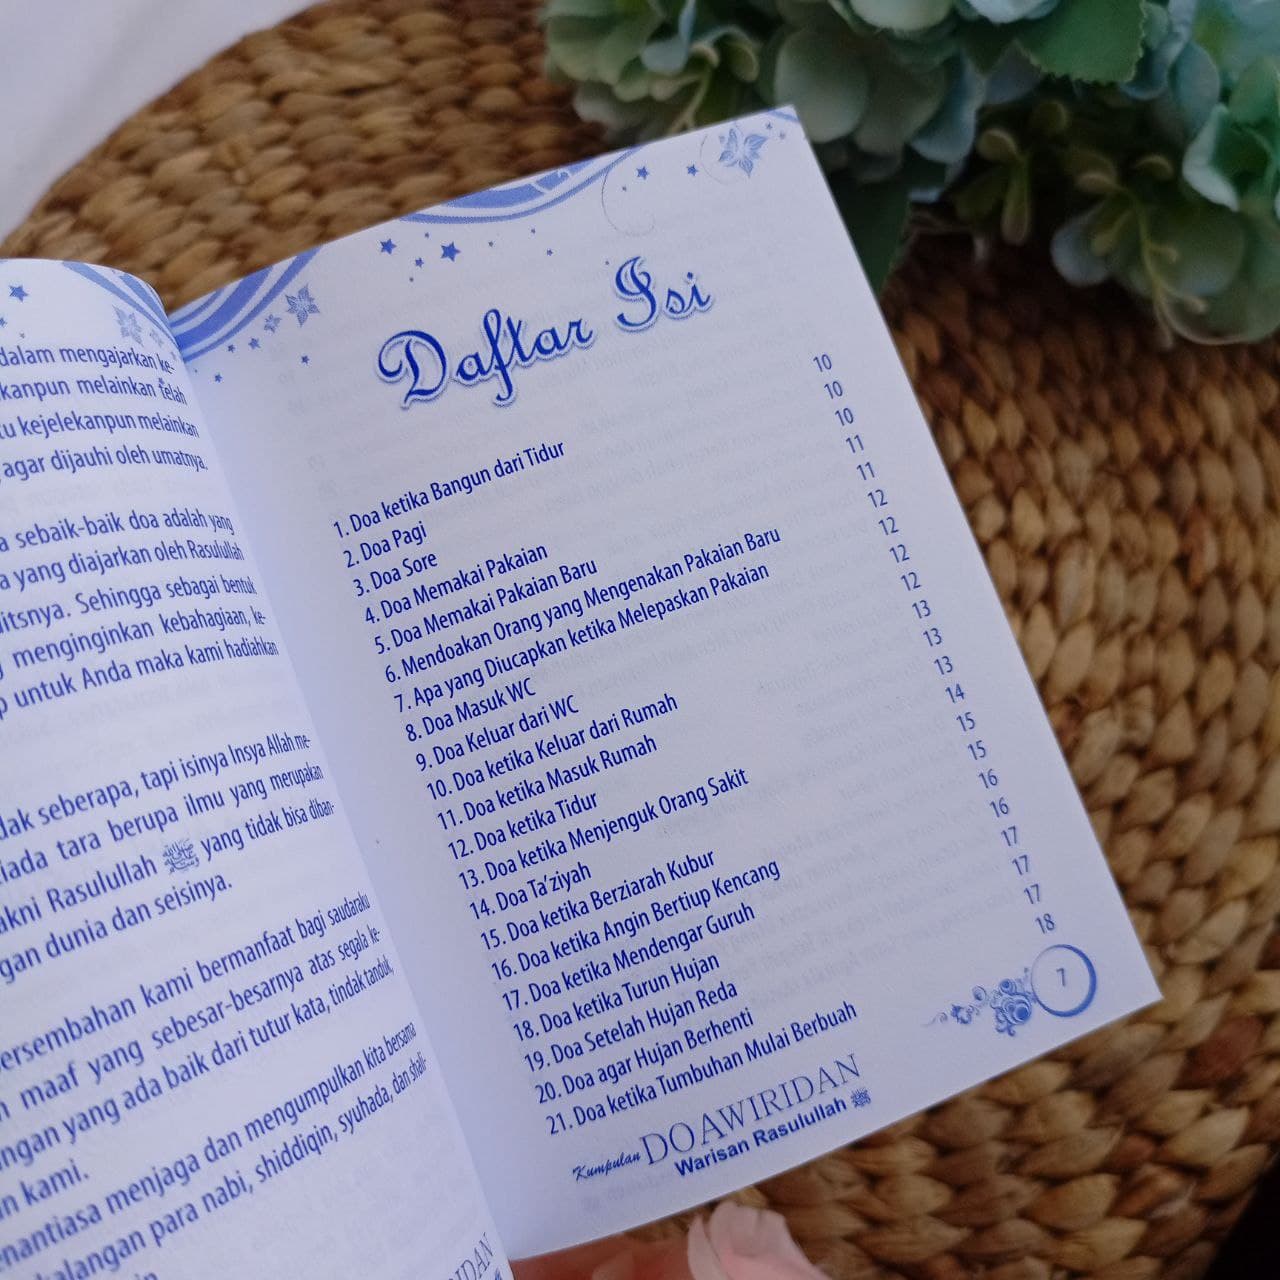 dalam mengajarkan ke-
kanpun melainkan telah
tu kejelekanpun melainkan
agar dijauhi oleh umatnya.
a sebaik-baik doa adalah yang
a yang diajarkan oleh Rasulullah
itsnya. Sehingga sebagai bentuk
menginginkan kebahagiaan, ke-
p untuk Anda maka kami hadiahkan
dak seberapa, tapi isinya Insya Allah me-
iada tara berupa ilmu yang merupakan
akni Rasulullah ﷺ yang tidak bisa diban-
gan dunia dan seisinya.
persembahan kami bermanfaat bagi saudaraku
maaf yang sebesar-besarnya atas segala ke-
ngan yang ada baik dari tutur kata, tindak tanduk,
n kami.
enantiasa menjaga dan mengumpulkan kita bersama
kalangan para nabi, shiddiqin, syuhada, dan shali-
Daftar Isi
1. Doa ketika Bangun dari Tidur 10
2. Doa Pagi 10
3. Doa Sore 10
4. Doa Memakai Pakaian 11
5. Doa Memakai Pakaian Baru 11
6. Mendoakan Orang yang Mengenakan Pakaian Baru 12
7. Apa yang Diucapkan ketika Melepaskan Pakaian 12
8. Doa Masuk WC 12
9. Doa Keluar dari WC 12
10. Doa ketika Keluar dari Rumah 13
11. Doa ketika Masuk Rumah 13
12. Doa ketika Tidur 13
13. Doa ketika Menjenguk Orang Sakit 14
14. Doa Ta'ziyah 15
15. Doa ketika Berziarah Kubur 15
16. Doa ketika Angin Bertiup Kencang 16
17. Doa ketika Mendengar Guruh 16
18. Doa ketika Turun Hujan 17
19. Doa Setelah Hujan Reda 17
20. Doa agar Hujan Berhenti 17
21. Doa ketika Tumbuhan Mulai Berbuah 18
7
Kumpulan DOA WIRIDAN
Warisan Rasulullah ﷺ